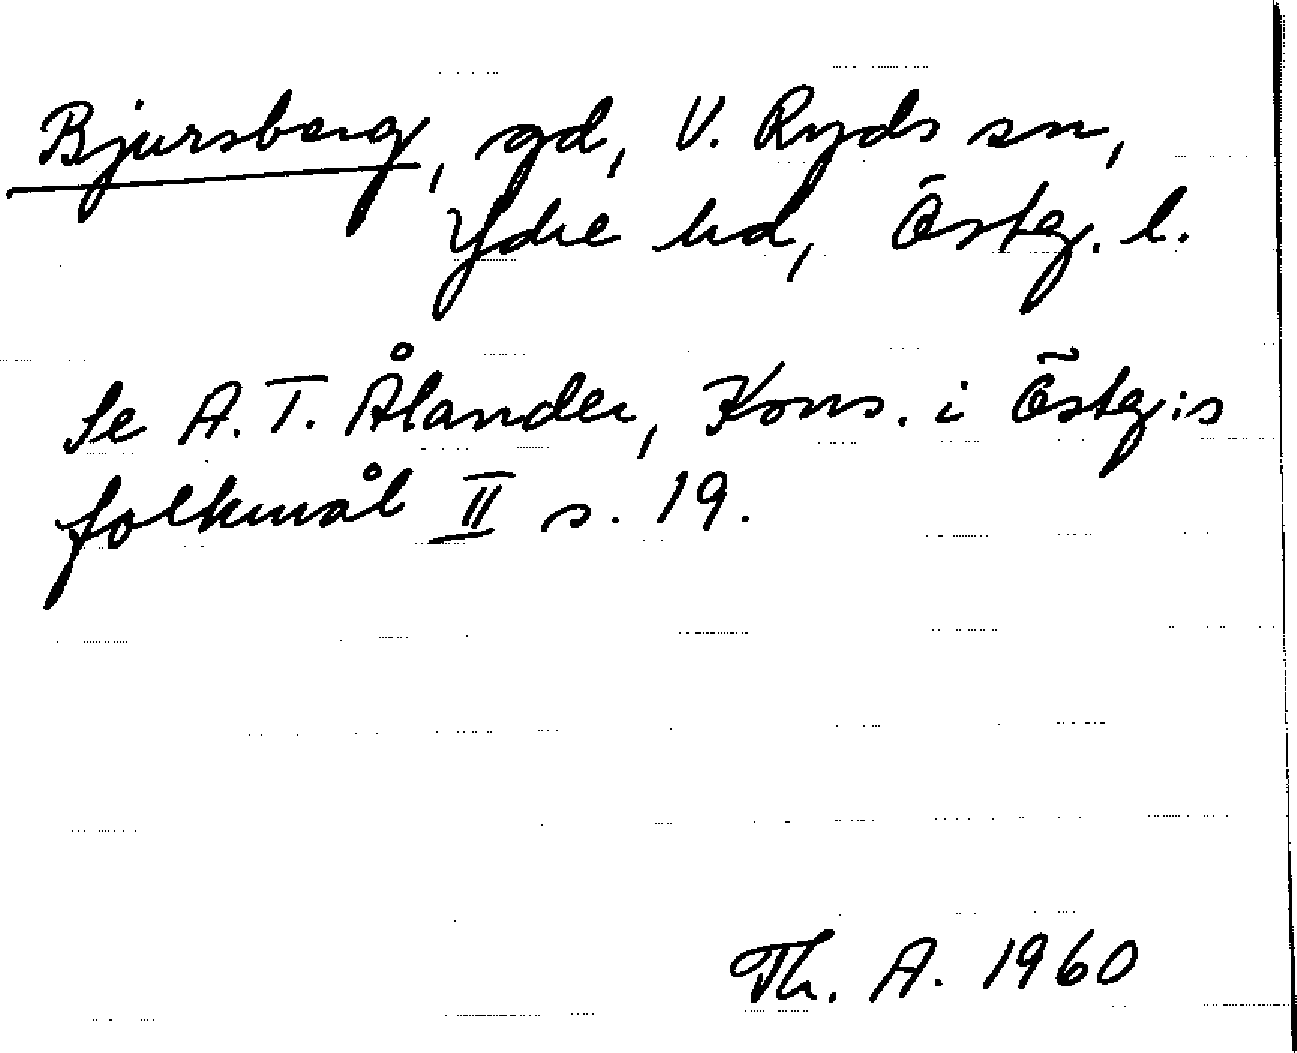 Bjursberg, gd, V. Ryds sn,
Ydre hd, Östg. l.
Se A.T. Ålander, Kons. i Östg:s
folkmål II s. 19.
Th. A. 1960